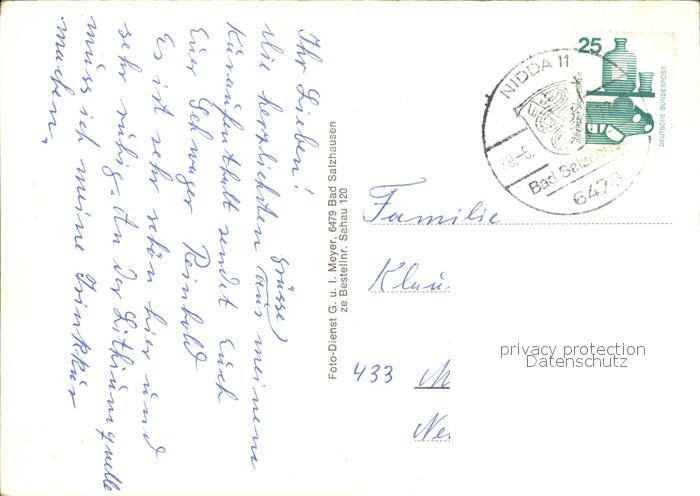 Ihr Lieben!
Grüsse,
die herzlichsten aus meinem
Kuraufenthalt sendet Euch
Euer Schwager Reinhold
Es ist sehr schön hier und
sehr ruhig. An der Lithiumquelle
muss ich meine Trinkkur
machen.
Foto-Dienst G. u. I. Meyer, 6479 Bad Salzhausen
ze Bestellnr. Sahau 120
25
DEUTSCHE BUNDESPOST
NIDDA 11
Bad Salzhausen
6479
Familie
Klau
433 M
Ne
privacy protection
Datenschutz